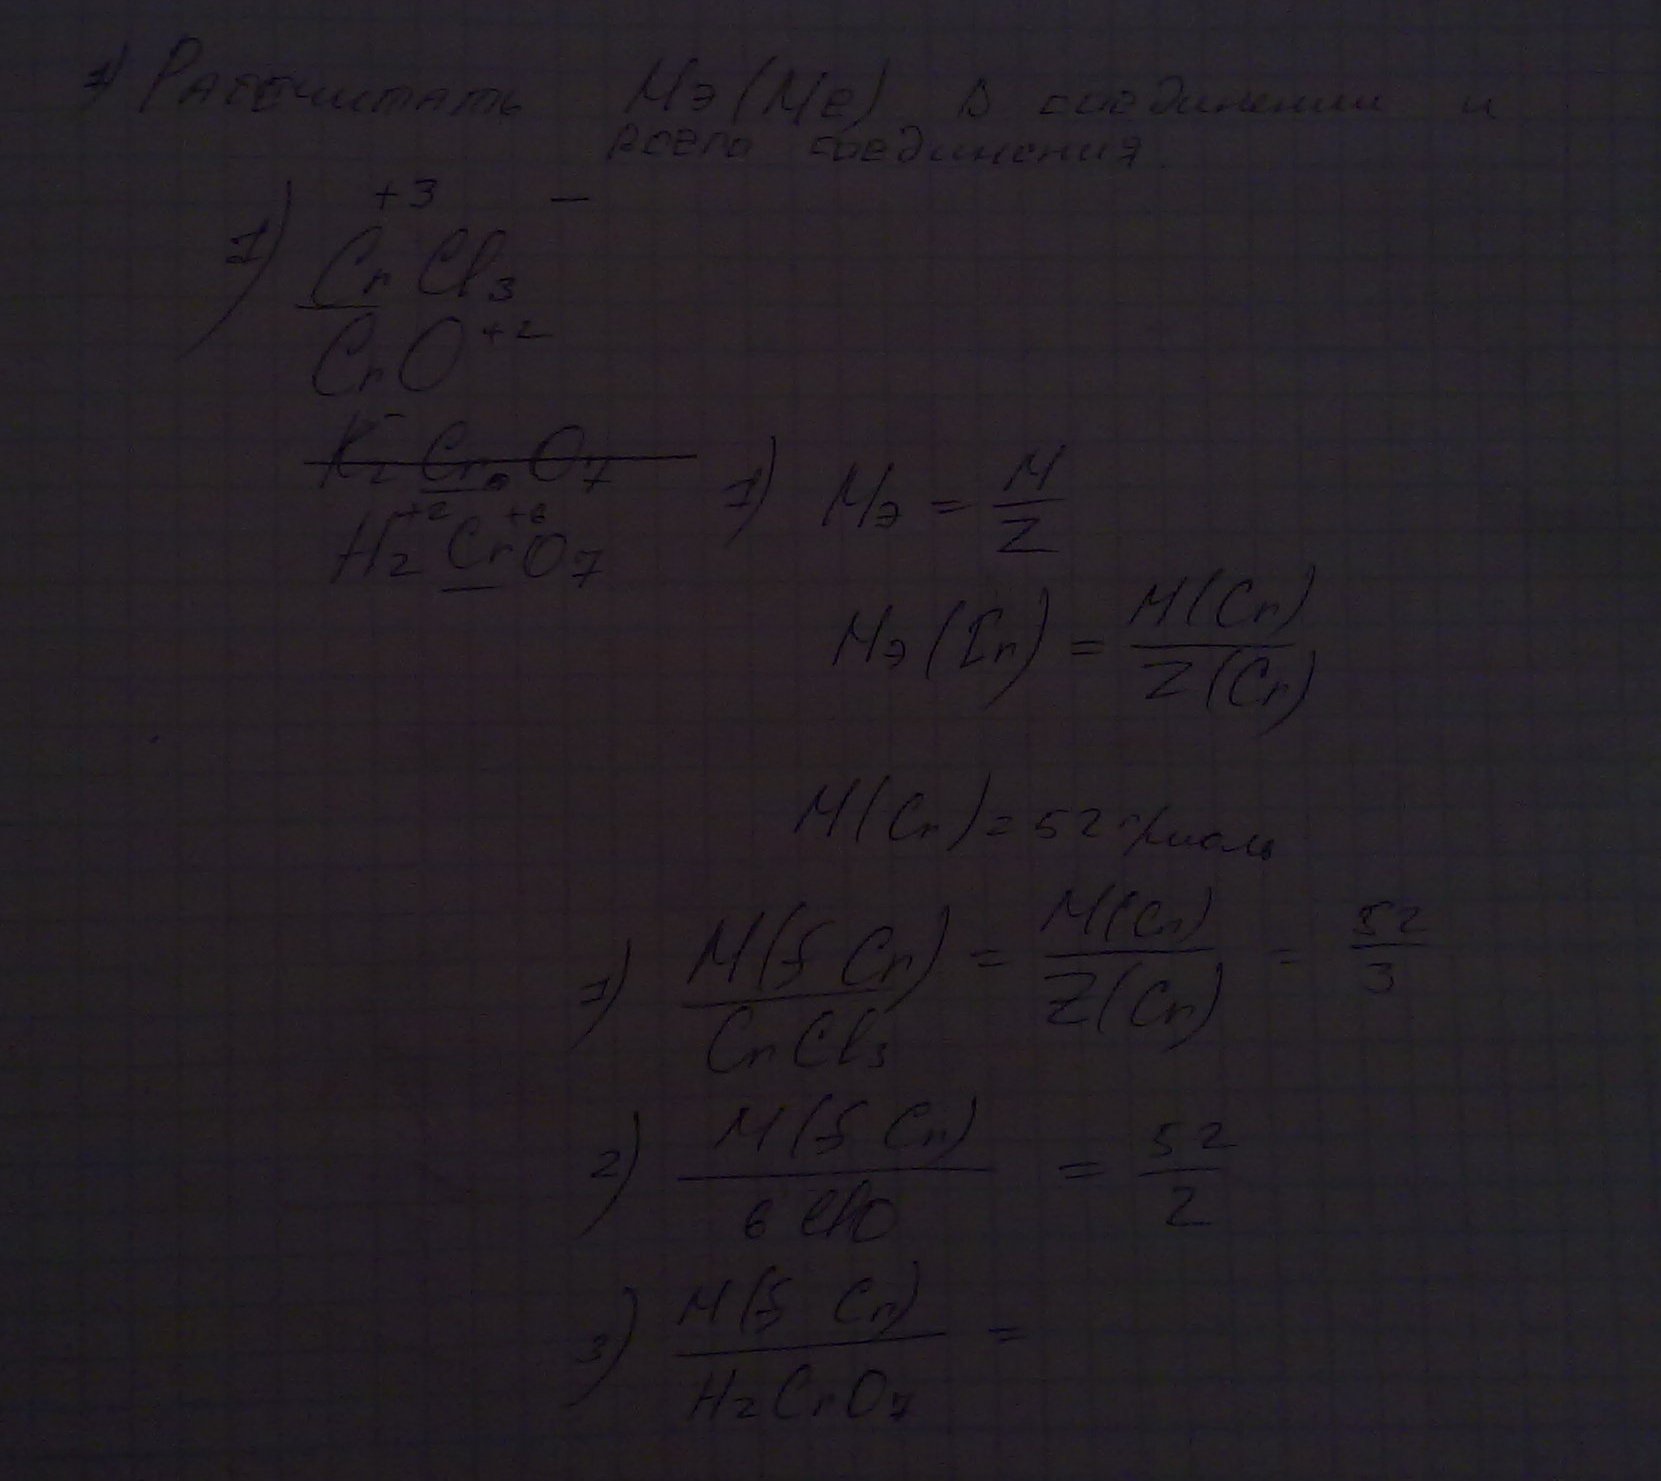 1) Рассчитать Мэ(Ме) в соединении и
всего соединения
+3 –
1) CrCl3
CrO+2
K2Cr2O7
+2 +6
H2CrO7
1) Мэ = M/Z
Мэ(Cr) = M(Cr)/Z(Cr)
M(Cr) = 52 г/моль
1) M(f Cr)/CrCl3 = M(Cr)/Z(Cr) = 52/3
2) M(f Cr)/в CrO = 52/2
3) M(f Cr)/H2CrO7 =